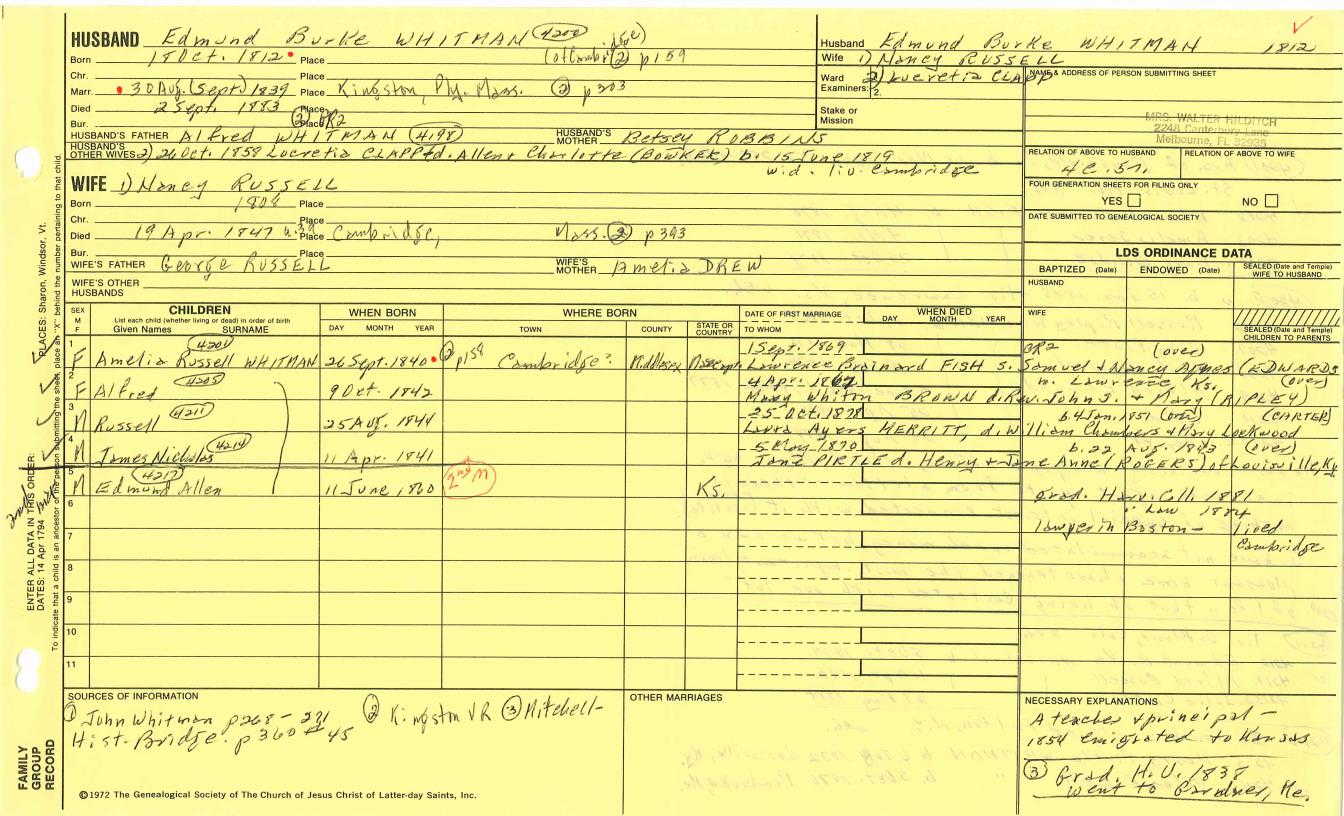 HUSBAND Edmund Burke WHITMAN (4200)
Born 18 Oct. 1812 Place (of Cambridge) (2) p159
Chr. Place
Marr. 30 Aug. (Sept) 1839 Place Kingston, Ply. Mass. (2) p303
Died 2 Sept. 1883 Place
Bur. Place (2) GR2
HUSBAND'S FATHER Alfred WHITMAN (4198) HUSBAND'S MOTHER Betsey ROBBINS
HUSBAND'S OTHER WIVES 2) 26 Oct. 1858 Lucretia CLAPP d. Allen & Charlotte (BOWKER) b. 15 June 1819
w.d. liv. Cambridge
WIFE 1) Nancy RUSSELL
Born 1808 Place
Chr. Place
Died 19 Apr. 1847 Place Cambridge, Mass. (2) p393
Bur. Place
WIFE'S FATHER George RUSSELL WIFE'S MOTHER Amelia DREW
WIFE'S OTHER HUSBANDS
Husband Edmund Burke WHITMAN 1812
Wife 1) Nancy RUSSELL
2) Lucretia CLAPP
Ward
Examiners: 2.
Stake or Mission
NAME & ADDRESS OF PERSON SUBMITTING SHEET
MRS. WALTER HILDITCH
2248 Canterbury Lane
Melbourne, FL 32935
RELATION OF ABOVE TO HUSBAND RELATION OF ABOVE TO WIFE
FOUR GENERATION SHEETS FOR FILING ONLY
YES NO
DATE SUBMITTED TO GENEALOGICAL SOCIETY
LDS ORDINANCE DATA
BAPTIZED (Date) ENDOWED (Date) SEALED (Date and Temple) WIFE TO HUSBAND
HUSBAND
WIFE
SEALED (Date and Temple) CHILDREN TO PARENTS
SEX M F
CHILDREN
List each child (whether living or dead) in order of birth
Given Names SURNAME
WHEN BORN
DAY MONTH YEAR
WHERE BORN
TOWN COUNTY STATE OR COUNTRY
DATE OF FIRST MARRIAGE
TO WHOM
WHEN DIED
DAY MONTH YEAR
1 F Amelia Russell WHITMAN (4201) 26 Sept. 1840 (2) p158 Cambridge? Middlesex 1 Sept. 1869 GR2 (over)
Lawrence Brainard FISH s. Samuel & Nancy Agnes (EDWARDS
2 F Alfred (4205) 9 Oct. 1842 4 Apr. 1867 m. Lawrence Ks. (over)
Mary Whiton BROWN d. Rev. John S. & Mary (RIPLEY)
3 M Russell (4211) 25 Aug. 1844 25 Oct. 1878 b. 4 Jan. 1851 (over) (CARTER)
Laura Ayers MERRITT, d. William Chambers & Mary Lockwood
4 M James Nicholas (4214) 11 Apr. 1841 5 May 1870 b. 22 Aug. 1843 (over)
Jane PIRTLE d. Henry & Jane Anne (ROGERS) of Louisville, Ky
5 M Edmund Allen (4217) 11 June 1860 2nd m Ks.
Grad. Harv. Coll. 1881
" Law 1884
lawyer in Boston - lived
Cambridge
6
7
8
9
10
11
SOURCES OF INFORMATION
(1) John Whitman p268-271 (2) Kingston VR (3) Mitchell-
Hist. Bridge. p360 #45
OTHER MARRIAGES
NECESSARY EXPLANATIONS
A teacher & principal -
1854 emigrated to Kansas
(3) Grad. H.U. 1838
went to Gardner, Me.
©1972 The Genealogical Society of The Church of Jesus Christ of Latter-day Saints, Inc.
FAMILY GROUP RECORD
ENTER ALL DATA IN THIS ORDER:
DATES: 14 Apr 1794
PLACES: Sharon, Windsor, Vt.
To indicate that a child is an ancestor of the person submitting the sheet, place an "X" behind the number pertaining to that child.